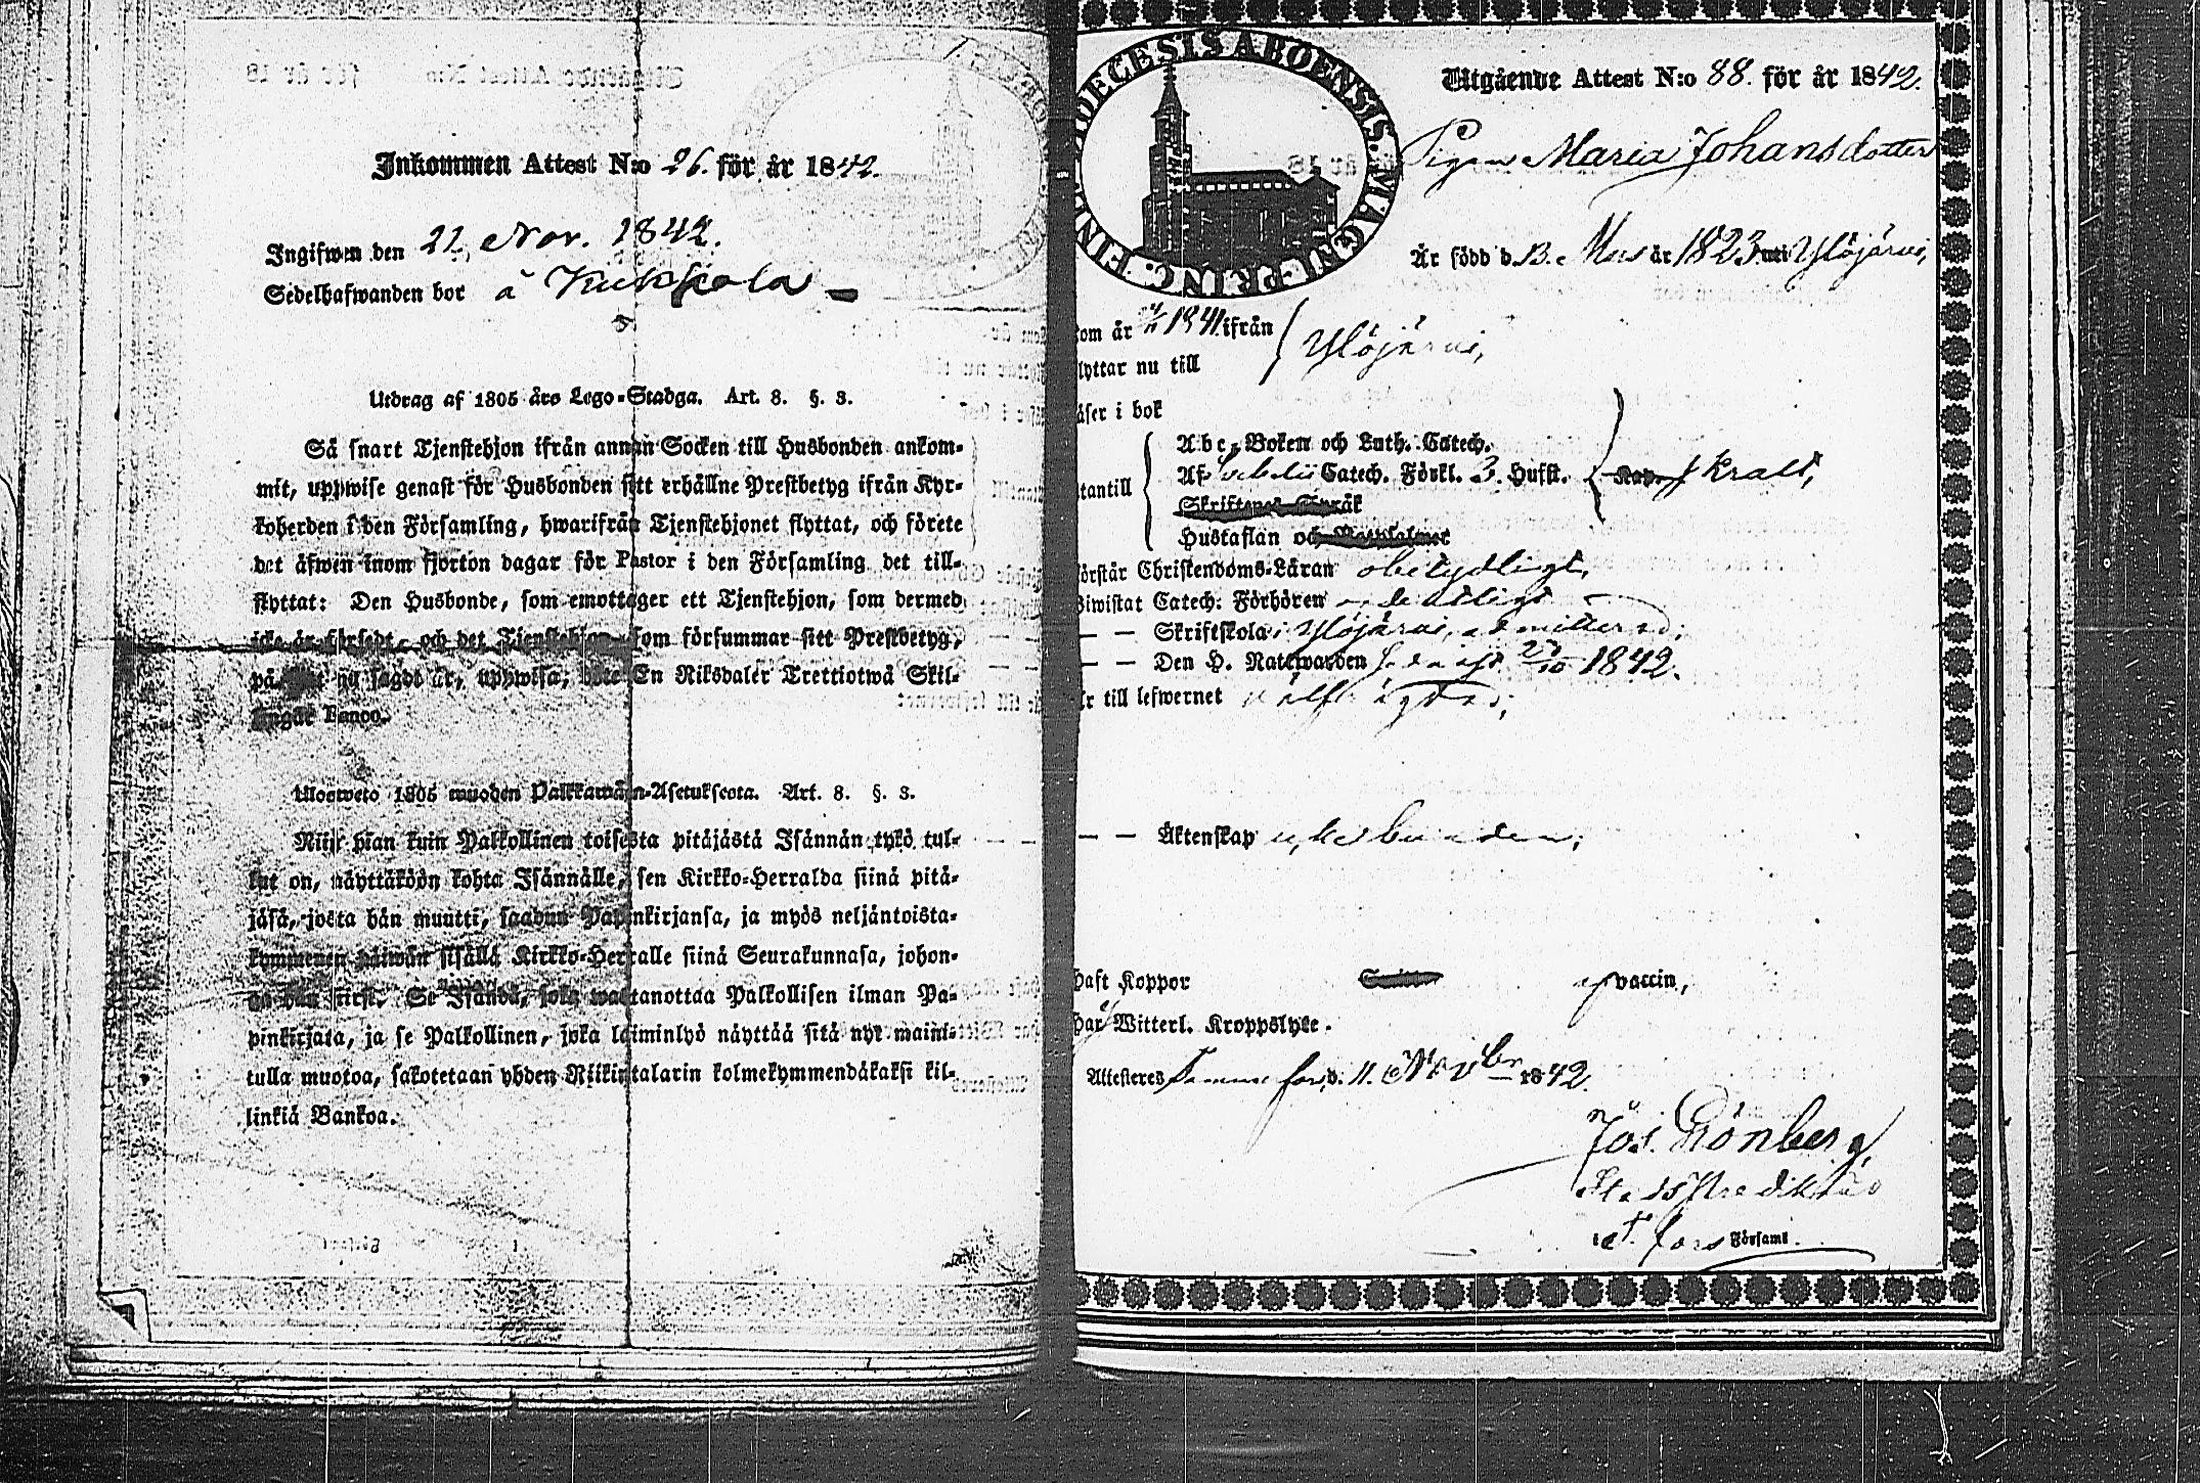 Inkommen Attest N:o 26. för år 1842.
Ingifwen den 21. Nov. 1842.
Sedelhafwanden bor å
Utdrag af 1805 års Lego-Stadga. Art. 8. §. 3.
Så snart Tjenstehjon ifrån annan Socken till Husbonden ankom-
mit, uppwise genast för Husbonden sitt erhållne Prestbetyg ifrån Kyr-
koherden i den Församling, hwarifrån Tjenstehjonet flyttat, och förete
det äfwen inom fjorton dagar för Pastor i den Församling det till-
flyttat: Den Husbonde, som emottager ett Tjenstehjon, som dermed
icke är försedt, och det Tjenstehjon som försummar sitt Prestbetyg,
på nu sagdt är, uppwisa; böte En Riksdaler Trettiotwå Skil-
lingar Banco.
Ulosweto 1805 wuoden Palkkawäen-Asetuksesta. Art. 8. §. 3.
Niin pian kuin Palkollinen toisesta pitäjästä Isännän tykö tul-
lut on, näyttäköön kohta Isännälle, sen Kirkko-Herralda siinä pitä-
jäsä, josta hän muutti, saadun Papinkirjansa, ja myös neljäntoista-
kymmenen päiwän sisällä Kirkko-Herralle siinä Seurakunnasa, johon-
ga hän siirsi. Se Isändä, joka wastanottaa Palkollisen ilman Pa-
pinkirjata, ja se Palkollinen, joka laiminlyö näyttää sitä nyt maini-
tulla muotoa, sakotetaan yhden Riikintalarin kolmekymmendäkaksi kil-
linkiä Bankoa.
DIECESIS ABOENSIS. MAGNI PRINC. FINL
Utgående Attest N:o 88. för år 1842.
Pigan Maria Johansdotter
Är född d. 13. Mars år 1823 uti Ylöjärvi,
kom år 1841 ifrån
flyttar nu till Ylöjärvi,
läser i bok
Abc-Boken och Luth. Catech.
utantill Af Catech. Förkl. 3. Hufst. Nöj. svakt,
Skriftenes Språk
Hustaflan och Botpsalmer
förstår Christendoms-Läran obetydligt,
Biwistat Catech: Förhören
— — Skriftskola i Ylöjärvi, admitterad;
— — Den H. Nattwarden 1842.
är till lefwernet
— — Äktenskap obunden;
haft Koppor Smitt vaccin,
har Witterl. Kroppslyte.
Attesteras Tammerfors, d. 11. Novbr 1842.
Jos. Grönberg
Stadspredikant
i T.fors Församl.